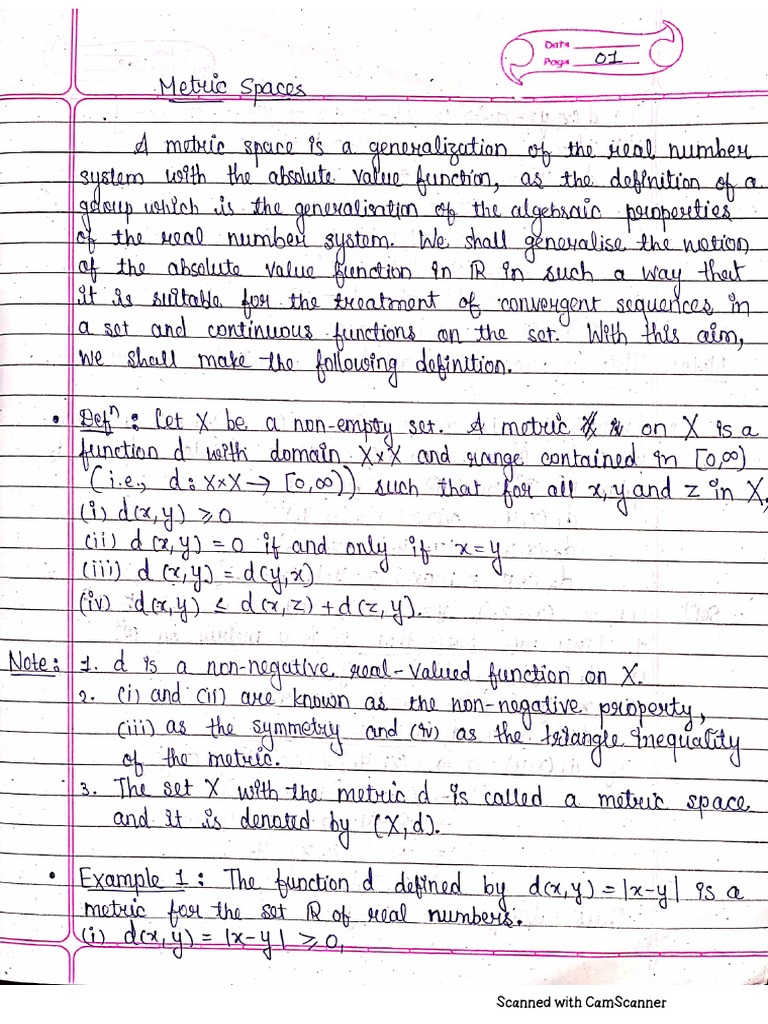 Date
Page 01
Metric Spaces
A metric space is a generalization of the real number
system with the absolute value function, as the definition of a
group which is the generalisation of the algebraic properties
of the real number system. We shall generalise the notion
of the absolute value function in ℝ in such a way that
it is suitable for the treatment of convergent sequences in
a set and continuous functions on the set. With this aim,
we shall make the following definition.
• Defⁿ: Let X be a non-empty set. A metric on X is a
function d with domain X×X and range contained in [0,∞)
(i.e., d: X×X → [0,∞)) such that for all x, y and z in X,
(i) d(x,y) ⩾ 0
(ii) d(x,y) = 0 if and only if x=y
(iii) d(x,y) = d(y,x)
(iv) d(x,y) ≤ d(x,z) + d(z,y).
Note: 1. d is a non-negative real-valued function on X.
2. (i) and (ii) are known as the non-negative property,
(iii) as the symmetry and (iv) as the triangle inequality
of the metric.
3. The set X with the metric d is called a metric space
and it is denoted by (X,d).
• Example 1: The function d defined by d(x,y) = |x-y| is a
metric for the set ℝ of real numbers.
(i) d(x,y) = |x-y| ⩾ 0,
Scanned with CamScanner